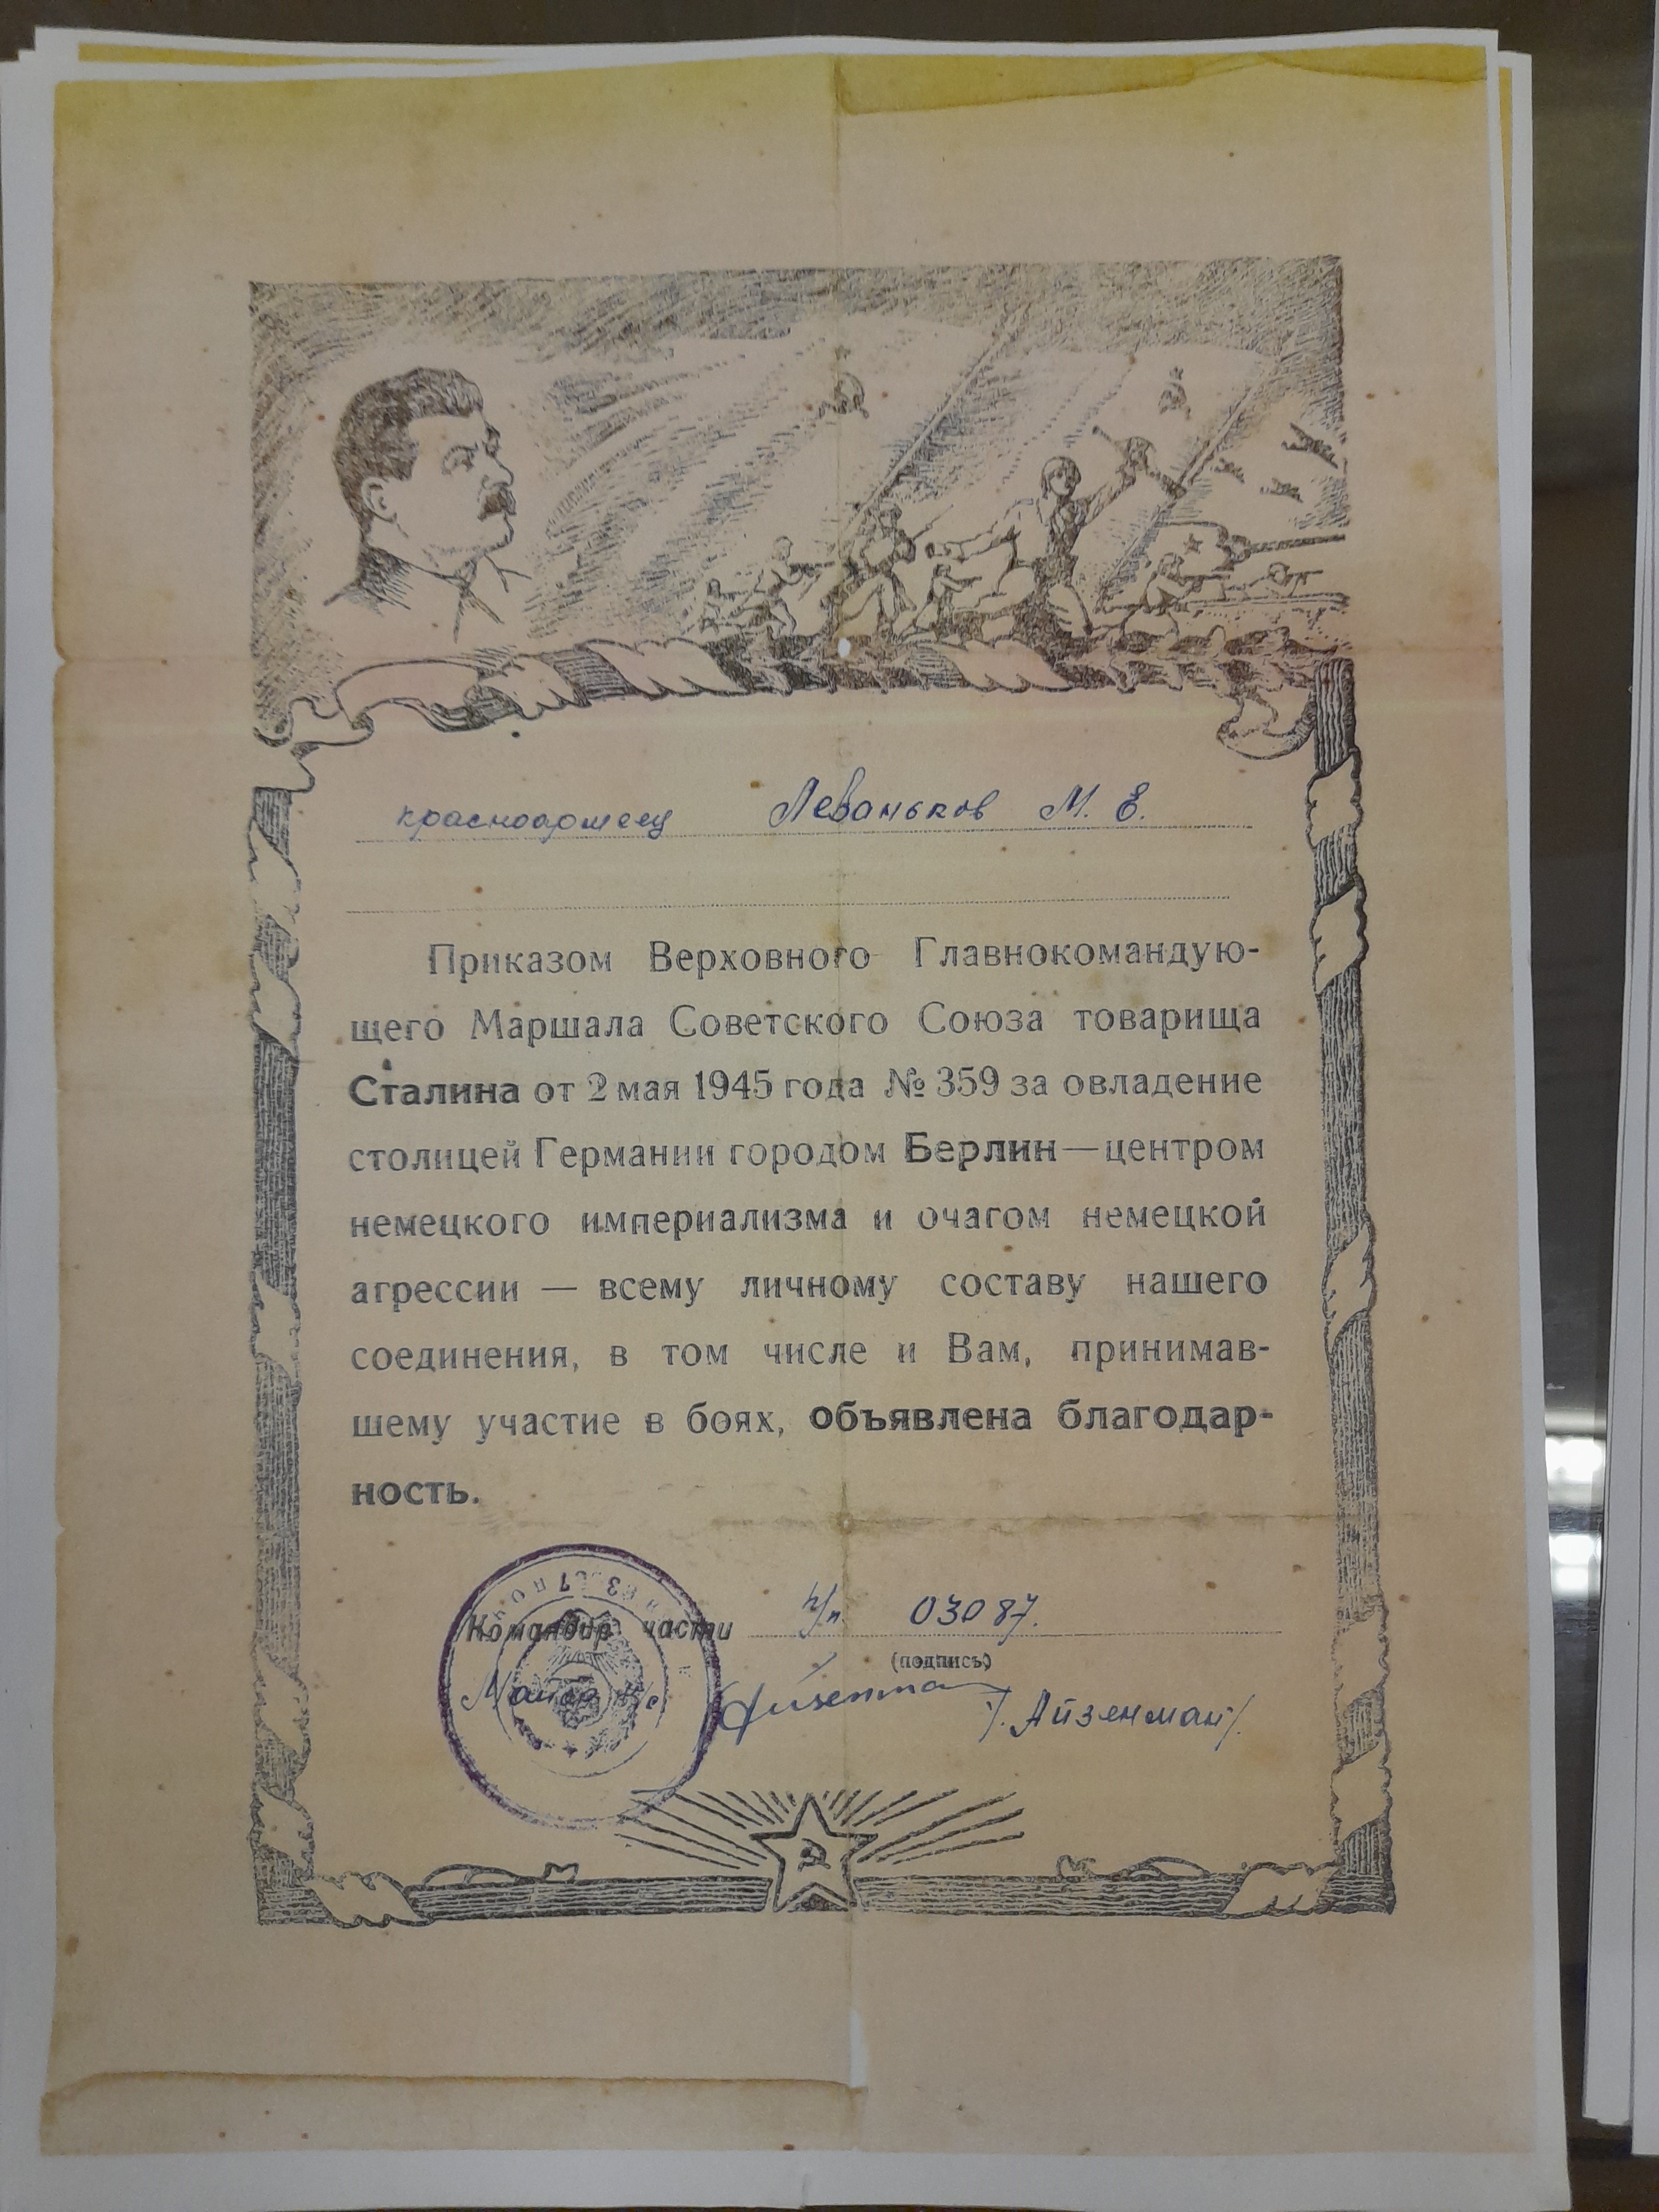 красноармеец Леваньков М. Е.
Приказом Верховного Главнокомандую-
щего Маршала Советского Союза товарища
Сталина от 2 мая 1945 года № 359 за овладение
столицей Германии городом Берлин — центром
немецкого империализма и очагом немецкой
агрессии — всему личному составу нашего
соединения, в том числе и Вам, принимав-
шему участие в боях, объявлена благодар-
ность.
Командир части п/п 03087.
(подпись)
Майор /Айзенман/.